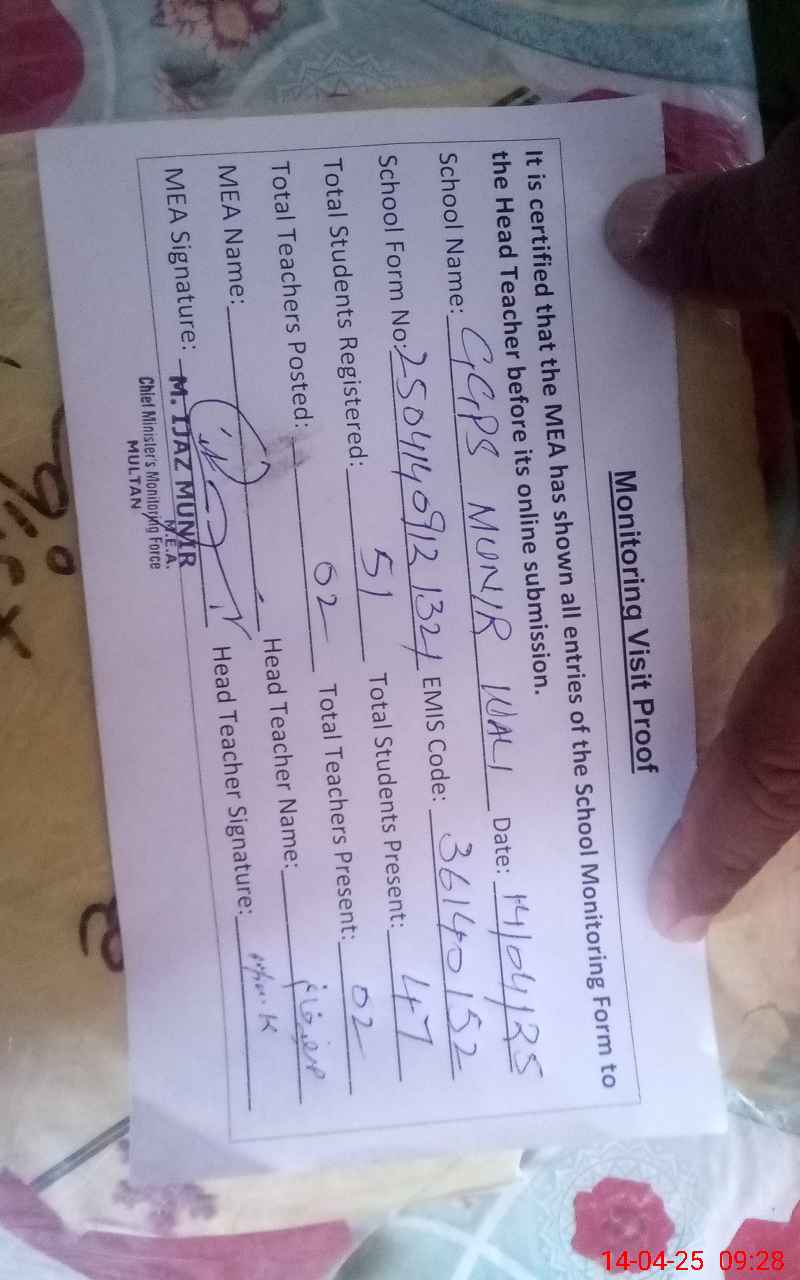 Monitoring Visit Proof
It is certified that the MEA has shown all entries of the School Monitoring Form to
the Head Teacher before its online submission.
School Name: GGPS MUNIR WALI Date: 14/04/25
School Form No: 25041409121321 EMIS Code: 36140152
Total Students Registered: 51 Total Students Present: 47
Total Teachers Posted: 02 Total Teachers Present: 02
MEA Name: Head Teacher Name:
MEA Signature: Head Teacher Signature:
M. IJAZ MUNIR
M.E.A.
Chief Minister's Monitoring Force
MULTAN
14-04-25 09:28